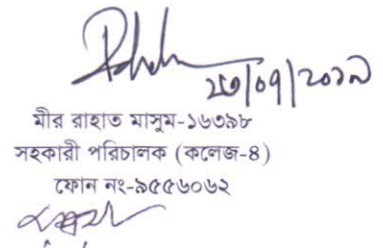 ২৩/০৭/২০১৯
মীর রাহাত মাসুম-১৬৩৯৮
সহকারী পরিচালক (কলেজ-৪)
ফোন নং-৯৫৫৬০৬২